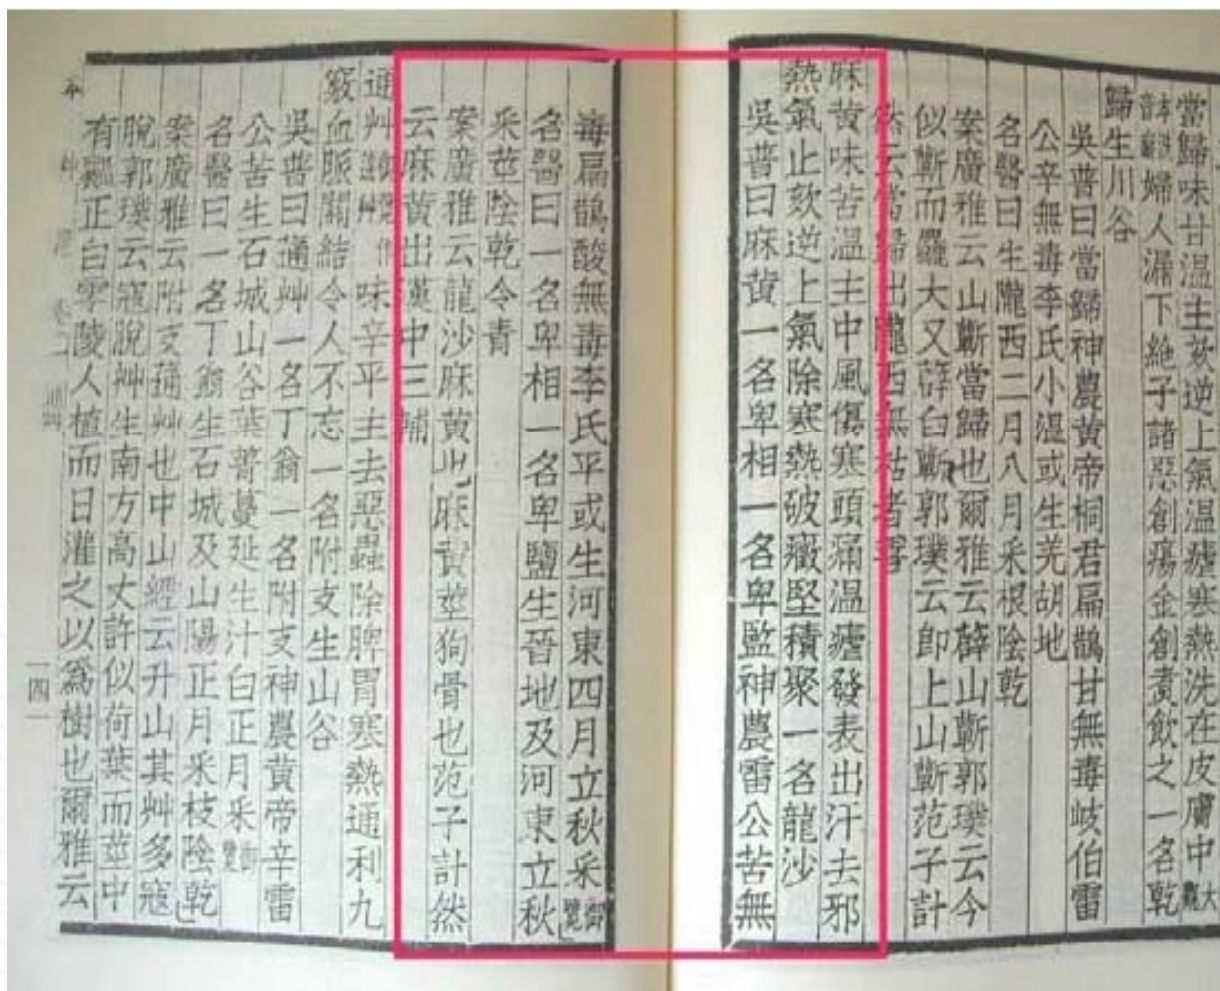 當歸味甘溫主欬逆上氣溫瘧寒熱洗在皮膚中大觀
本洗音癬婦人漏下絕子諸惡創瘍金創煮飲之一名乾
歸生川谷
吳普曰當歸神農黃帝桐君扁鵲甘無毒岐伯雷
公辛無毒李氏小溫或生羌胡地
名醫曰生隴西二月八月采根陰乾
案廣雅云山蘄當歸也爾雅云薜山蘄郭璞云今
似蘄而麤大又薜白蘄郭璞云即上山蘄范子計
然云當歸出隴西無枯者善
麻黃味苦溫主中風傷寒頭痛溫瘧發表出汗去邪
熱氣止欬逆上氣除寒熱破癥堅積聚一名龍沙
吳普曰麻黃一名卑相一名卑監神農雷公苦無
毒扁鵲酸無毒李氏平或生河東四月立秋采御覽
名醫曰一名卑相一名卑鹽生晉地及河東立秋
采莖陰乾令青
案廣雅云龍沙麻黃也麻黃莖狗骨也范子計然
云麻黃出漢中三輔
通艸味辛平主去惡蟲除脾胃寒熱通利九
竅血脈關結令人不忘一名附支生山谷
吳普曰通艸一名丁翁一名附支神農黃帝辛雷
公苦生石城山谷葉菁蔓延生汁白正月采御覽
名醫曰一名丁翁生石城及山陽正月采枝陰乾
案廣雅云附支蓪艸也中山經云升山其艸多寇
脫郭璞云寇脫艸生南方高丈許似荷葉而莖中
有瓤正白零陵人植而日灌之以爲樹也爾雅云
一四一